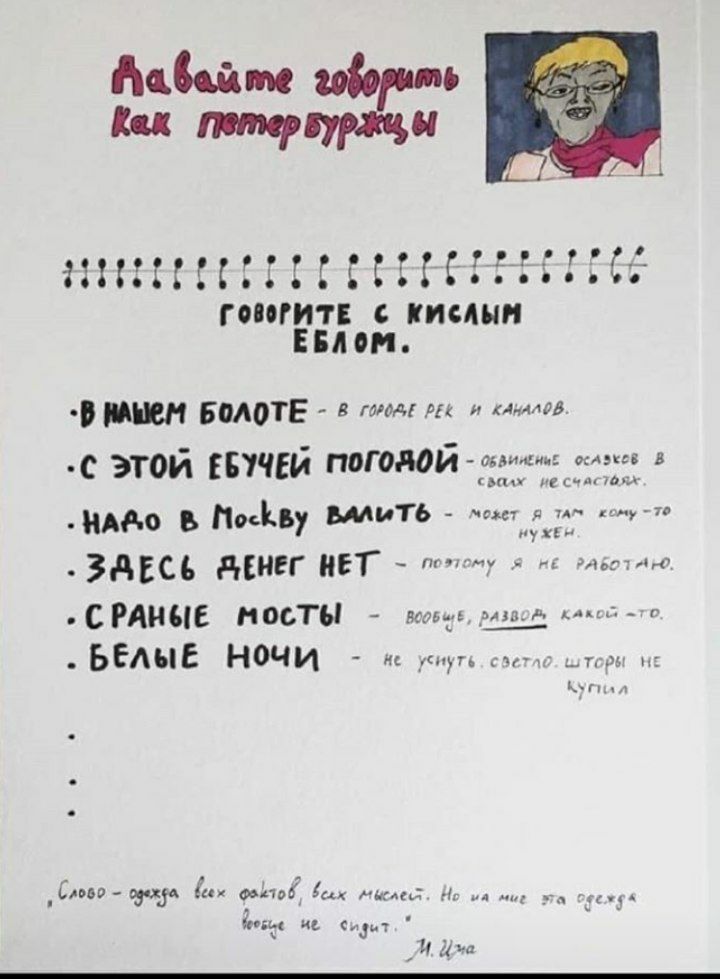 Давайте говорить
Как петербуржцы
ГОВОРИТЕ С КИСЛЫМ
ЕБЛОМ.
•В НАШЕМ БОЛОТЕ - В ГОРОДЕ РЕК И КАНАЛОВ.
•С ЭТОЙ ЕБУЧЕЙ ПОГОДОЙ - ОБВИНЕНИЕ ОСАДКОВ В
СВОИХ НЕСЧАСТЬЯХ.
•НАДО В МОСКВУ ВАЛИТЬ - МОЖЕТ Я ТАМ КОМУ-ТО
НУЖЕН.
•ЗДЕСЬ ДЕНЕГ НЕТ - ПОЭТОМУ Я НЕ РАБОТАЮ.
•СРАНЫЕ МОСТЫ - ВООБЩЕ, РАЗВОД КАКОЙ-ТО.
•БЕЛЫЕ НОЧИ - НЕ УСНУТЬ. СВЕТЛО. ШТОРЫ НЕ
КУПИЛ
•
•
•
„Слово - одежда всех фактов, всех мыслей. Но на мне эта одежда
вообще не сидит."
М.